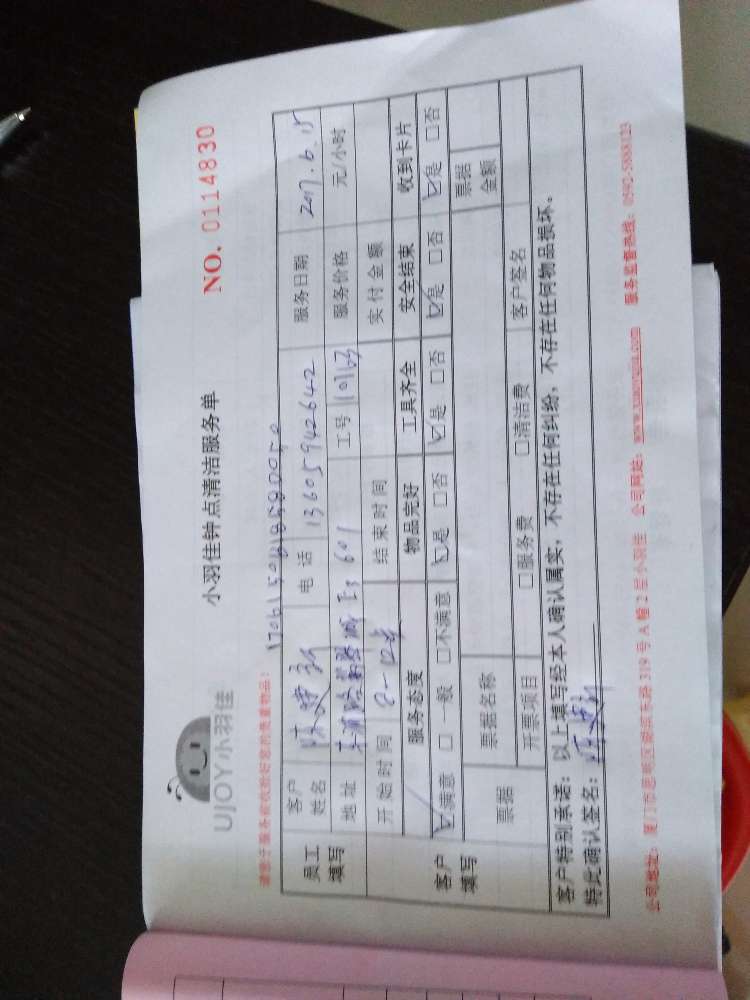 UJOY小羽佳
小羽佳钟点清洁服务单
NO. 0114830
请您在服务前收拾好您的贵重物品:
员工填写 客户姓名 电话 13605942642 服务日期 2017.6.15
地址 601 工号 服务价格 元/小时
开始时间 结束时间 实付金额
客户填写 服务态度 物品完好 工具齐全 安全结束 收到卡片
☑满意 □一般 □不满意 ☑是 □否 ☑是 □否 ☑是 □否 ☑是 □否
票据 票据名称 票据金额
开票项目 □服务费 □清洁费 客户签名
客户特别承诺:以上填写经本人确认属实,不存在任何纠纷,不存在任何物品损坏。
特此确认签名:
公司地址:厦门市思明区湖滨东路319号A幢2层小羽佳 公司网址:www.xiaoyujia.com 服务监督热线:0592-5888123